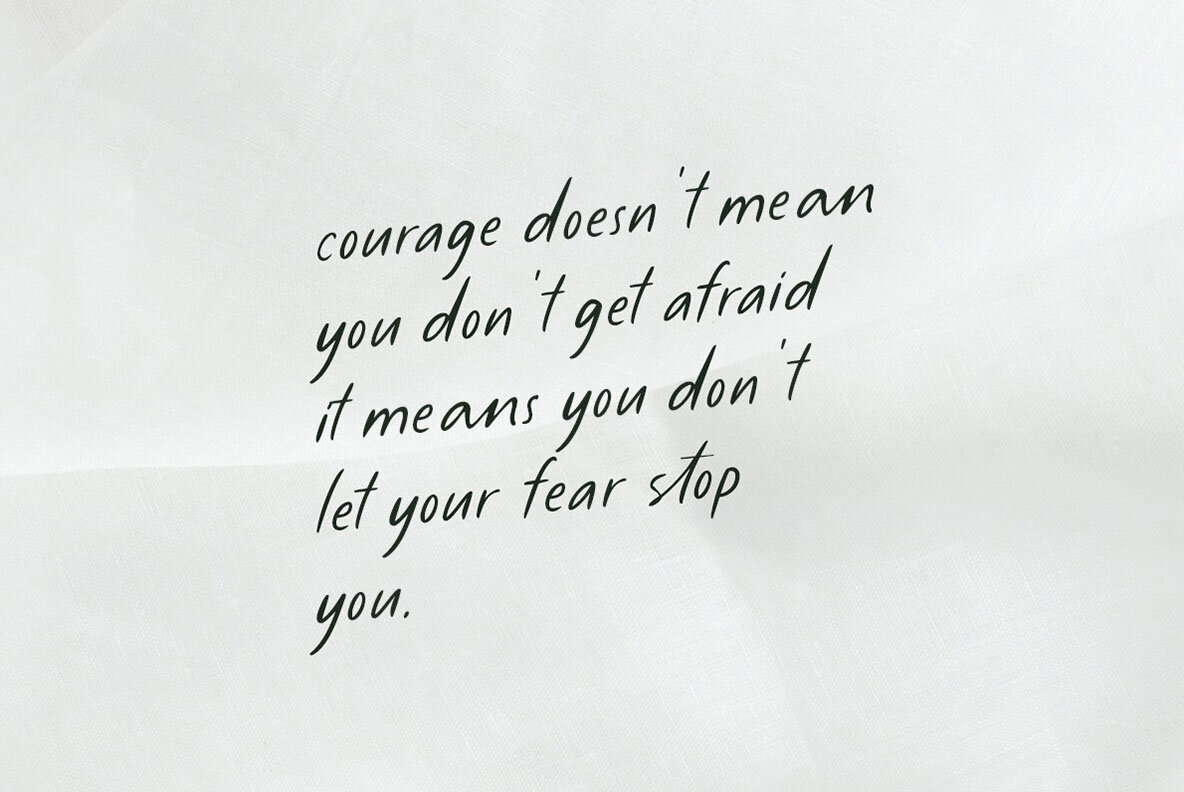 courage doesn't mean
you don't get afraid
it means you don't
let your fear stop
you.